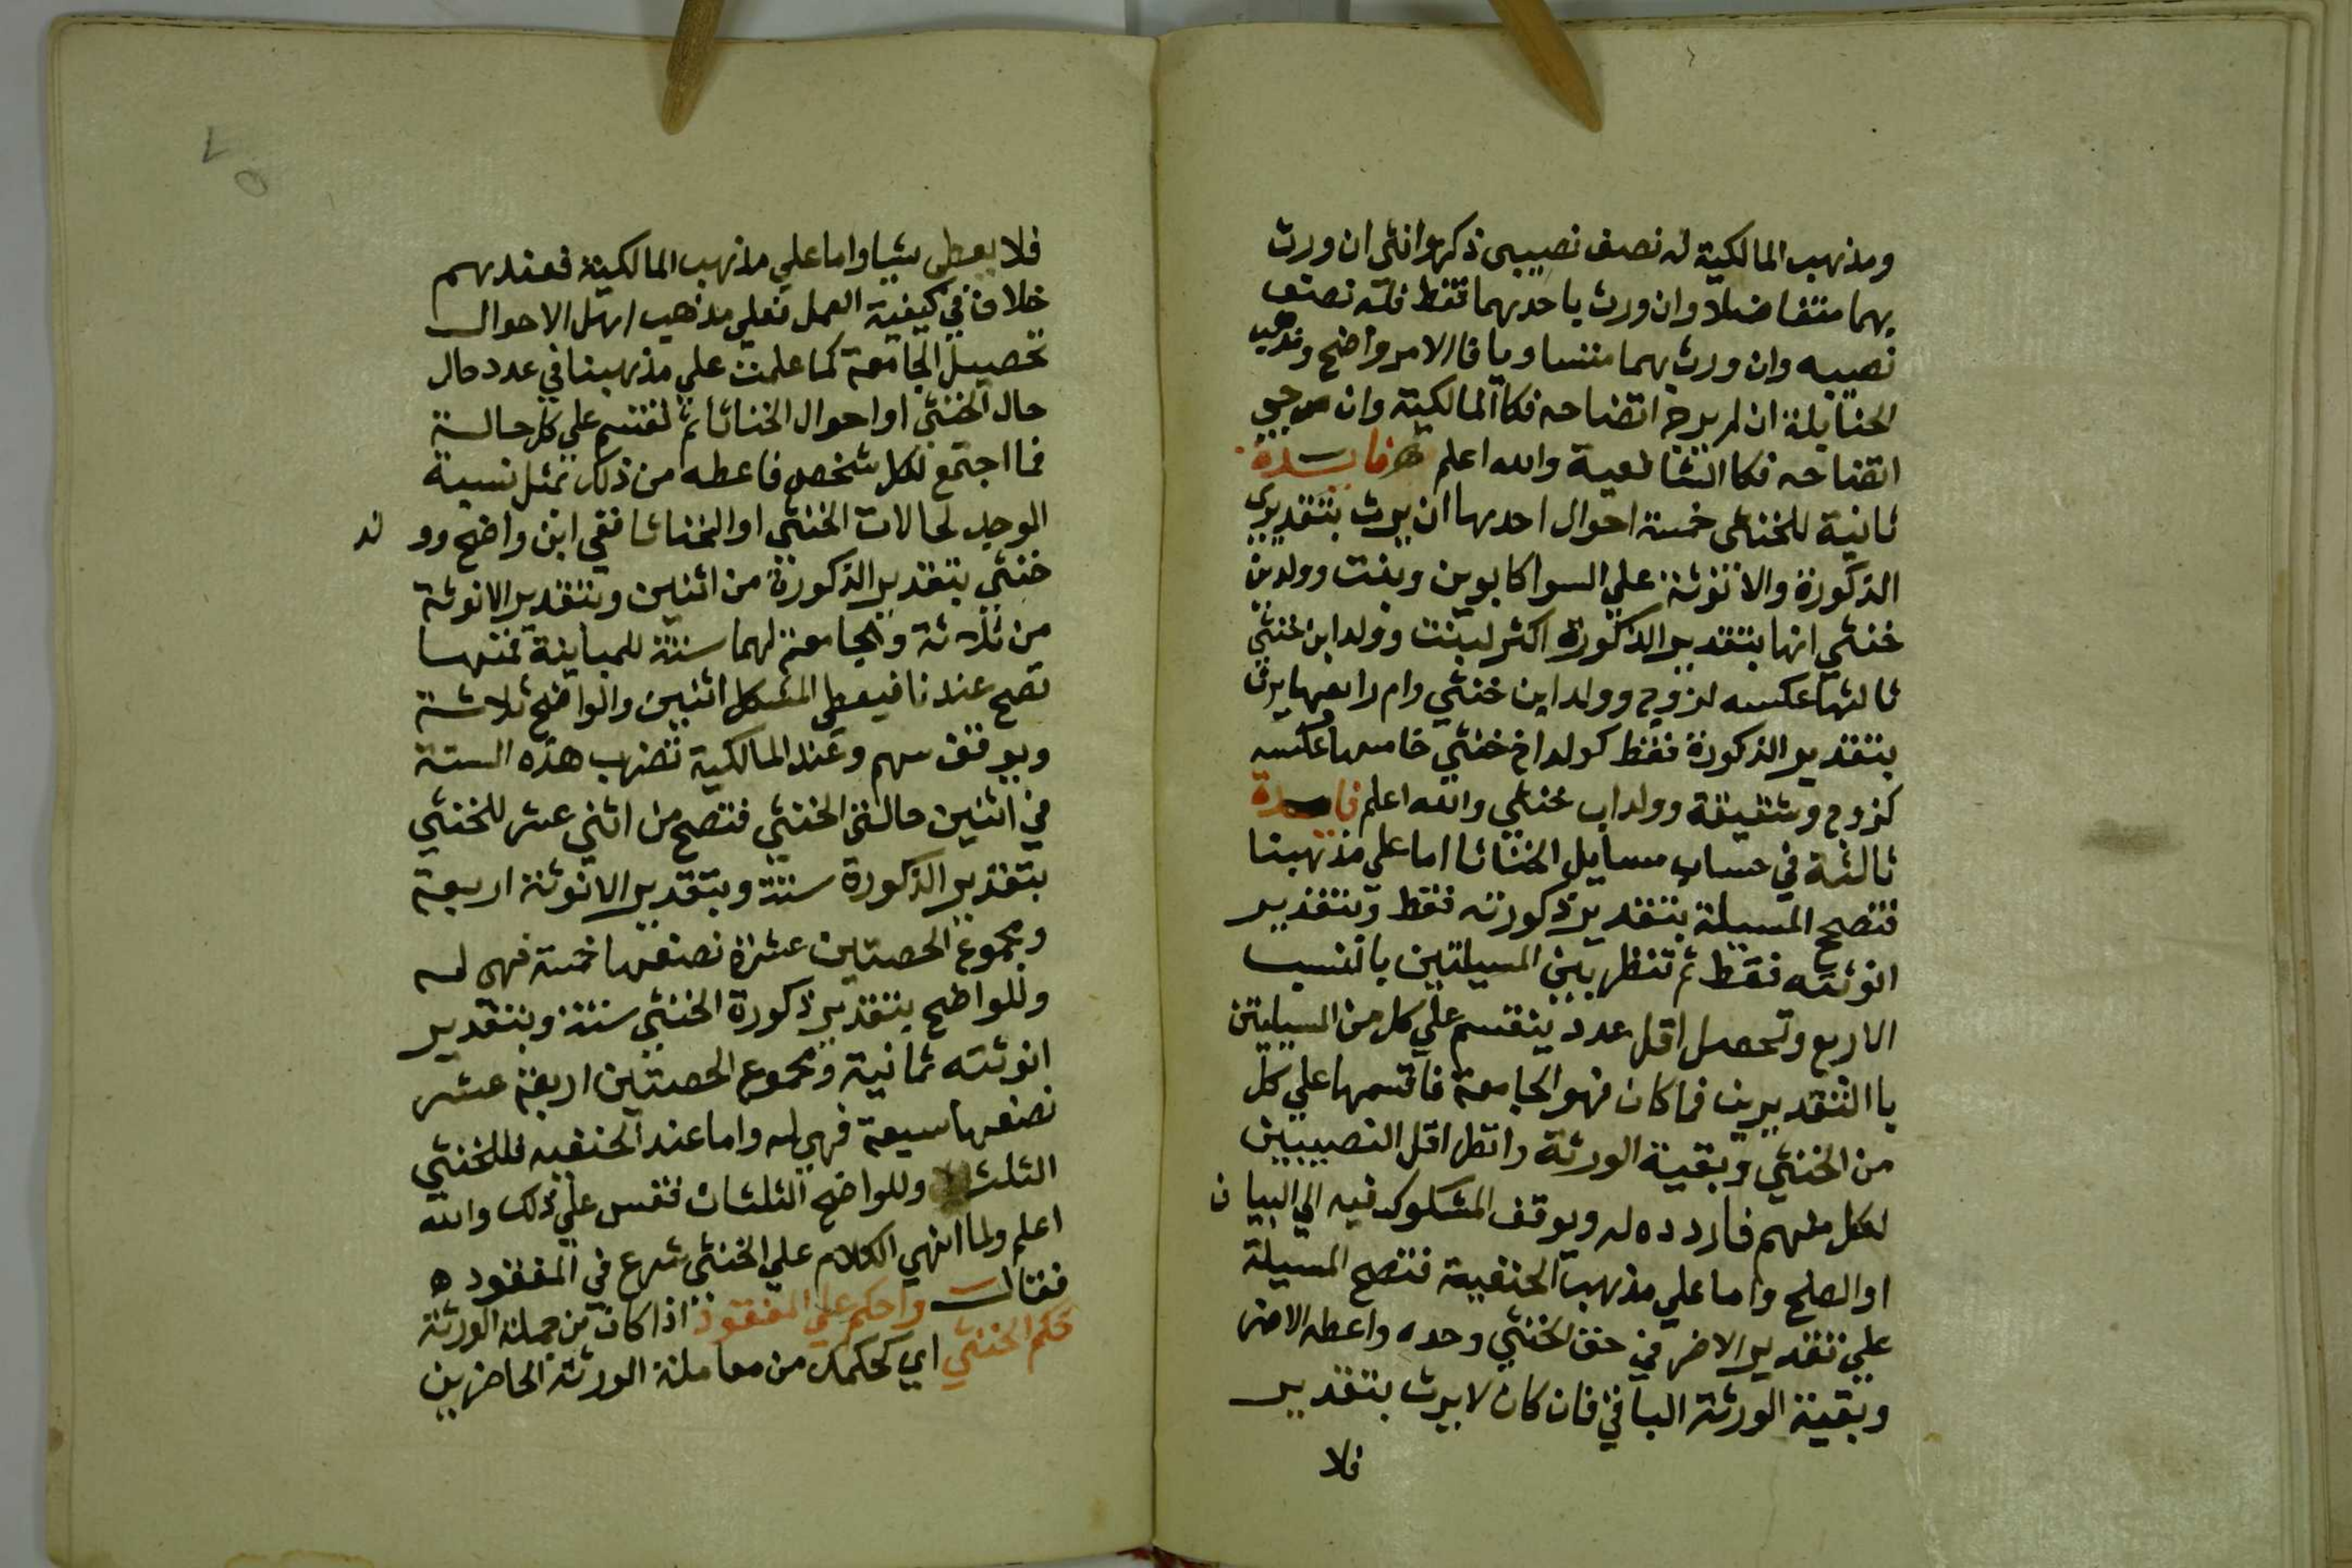 ومذهب المالكية له نصف نصيبى ذكر وانثى ان ورث
بهما متفاضلا وان ورث باحدهما فقط فله نصف
نصيبه وان ورث بهما متساويا فالامر واضح ومذهب
الحنابلة ان لم يرج اتضاحه فكا المالكية وان رجي
اتضاحه فكا الشافعية والله اعلم فايدة
ثانية للخنثى خمسة احوال احدها ان يرث بتقديرى
الذكورة والانوثة علي السوا كابوين وبنت وولد بن
خنثي انها بتقدير الذكورة اكثر لبنت وولد ابن خنثي
ثالثها عكسه لزوج وولد ابن خنثي وام رابعها يرث
بتقدير الذكورة فقط كولد اخ خنثي خامسها عكسه
كزوج وشقيقة وولد اب خنثي والله اعلم فايدة
ثالثة في حساب مسايل الخناثا اما علي مذهبنا
فتصحح المسيلة بتقدير ذكورته فقط وبتقدير
انوثته فقط ثم تنظر بين المسيلتين بالنسب
الاربع وتحصل اقل عدد ينقسم علي كل من المسيلتين
باالتقديرين فما كان فهو الجامعة فاقسمها علي كل
من الخنثي وبقية الورثة وانظر اقل النصيبين
لكل منهم فاردده له ويوقف المشكوك فيه الي البيان
او الصلح واما علي مذهب الحنفية فتصح المسيلة
علي تقدير الاضر في حق الخنثي وحده واعطه الاضر
وبقية الورثة الباقي فان كان لا يرث بتقدير
فلا
فلا يعطى شيا واما علي مذهب المالكية فعندهم
خلاف في كيفية العمل فعلي مذهب اهل الاحوال
تحصيل الجامعة كما علمت علي مذهبنا في عدد حال
حال الخنثي او احوال الخناثا ثم تقسم علي كل حالة
فما اجتمع لكل شخص فاعطه من ذلك بمثل نسبة
الوحد لحالات الخنثي او الخناثا ففي ابن واضح وولد
خنثي بتقدير الذكورة من اثنين وبتقدير الانوثة
من ثلاثة والجامعة لهما ستة للمباينة فمنها
تصح عندنا فيعطى المشكل اثنين والواضح ثلاثة
ويوقف سهم وعند المالكية تضرب هذه الستة
في اثنين حالتى الخنثي فتصح من اثني عشر للخنثي
بتقدير الذكورة ستة وبتقدير الانوثة اربعة
ومجموع الحصتين عشرة نصفها خمسة فهى له
وللواضح بتقدير ذكورة الخنثي ستة وبتقدير
انوثته ثمانية ومجموع الحصتين اربعة عشر
نصفها سبعة فهي له واما عند الحنفيه فللخنثي
الثلث وللواضح الثلثان فقس علي ذلك والله
اعلم ولما انهي الكلام علي الخنثي شرع في المفقود ه
فقال واحكم علي المفقود اذا كان من جملة الورثة
حكم الخنثي اي كحكمك من معاملة الورثة الحاضرين